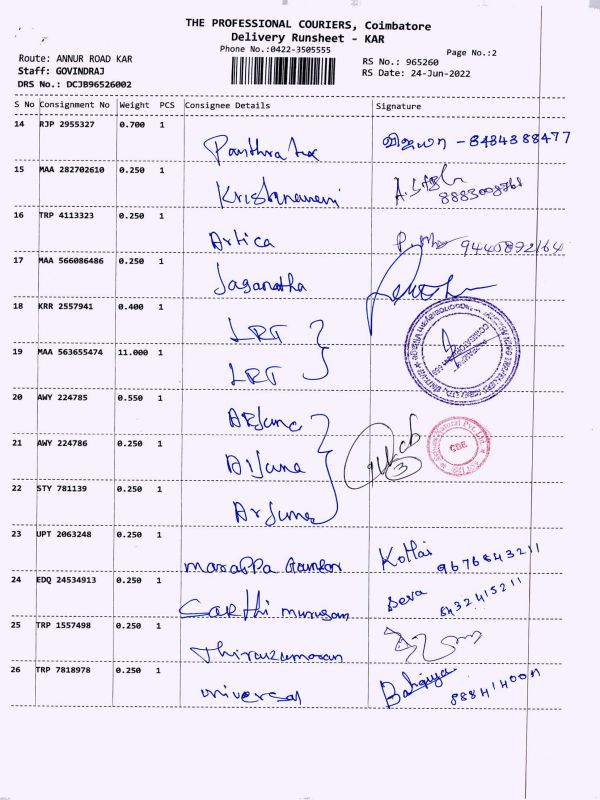 THE PROFESSIONAL COURIERS, Coimbatore
Delivery Runsheet - KAR
Phone No.:0422-3505555
Page No.:2
Route: ANNUR ROAD KAR
Staff: GOVINDRAJ
DRS No.: DCJB96526002
RS No.: 965260
RS Date: 24-Jun-2022
S No Consignment No Weight PCS Consignee Details Signature
14 RJP 2955327 0.700 1 விஜயா - 8484388477
15 MAA 282702610 0.250 1
16 TRP 4113323 0.250 1 Artica
17 MAA 566086486 0.250 1 Jaganatha
18 KRR 2557941 0.400 1 LRT
19 MAA 563655474 11.000 1 LRT
20 AWY 224785 0.550 1 Arjuna
21 AWY 224786 0.250 1 Arjuna 3
CBE
22 STY 781139 0.250 1 Arjuna
23 UPT 2063248 0.250 1 Kottai 9676843211
24 EDQ 24534913 0.250 1 Murugan Deva 8432415211
25 TRP 1557498 0.250 1
26 TRP 7818978 0.250 1 universal